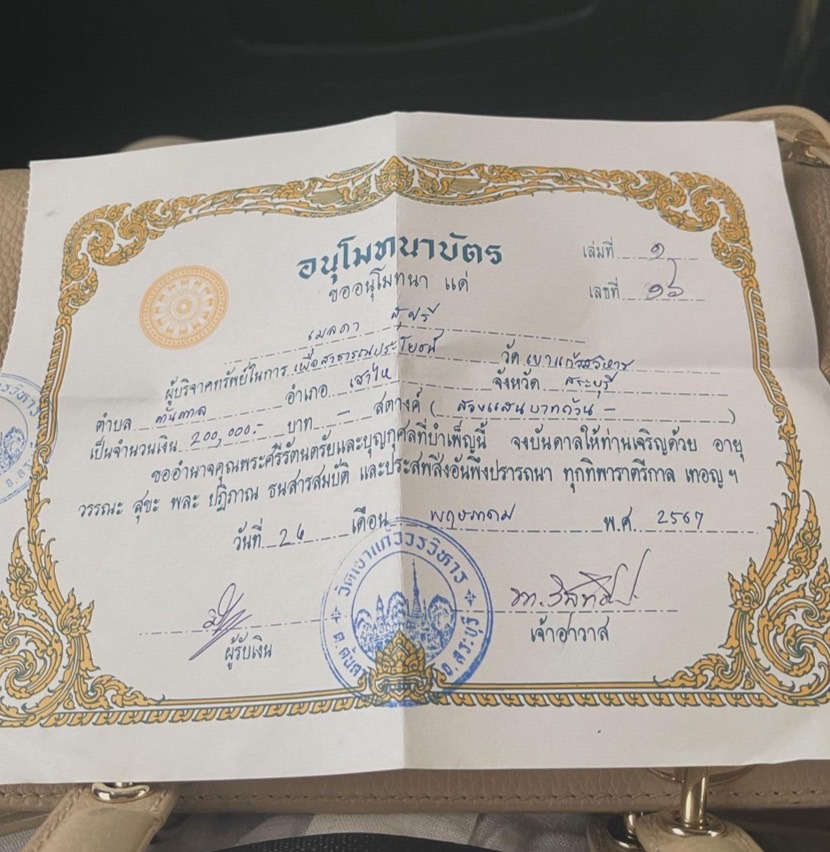 อนุโมทนาบัตร
เล่มที่ ๑
ขออนุโมทนา แด่
เลขที่ ๑๖
เมลดา สุศรี
ผู้บริจาคทรัพย์ในการ เพื่อสาธารณประโยชน์ วัด เขาแก้ววรวิหาร
ตำบล ต้นตาล อำเภอ เสาไห้ จังหวัด สระบุรี
เป็นจำนวนเงิน 200,000.- บาท - สตางค์ ( สองแสนบาทถ้วน - )
ขออำนาจคุณพระศรีรัตนตรัยและบุญกุศลที่บำเพ็ญนี้ จงบันดาลให้ท่านเจริญด้วย อายุ
วรรณะ สุขะ พละ ปฏิภาณ ธนสารสมบัติ และประสพสิ่งอันพึงปรารถนา ทุกทิพาราตรีกาล เทอญ ฯ
วันที่ 24 เดือน พฤษภาคม พ.ศ. 2567
วัดเขาแก้ววรวิหาร
จ.สระบุรี
ผู้รับเงิน
เจ้าอาวาส